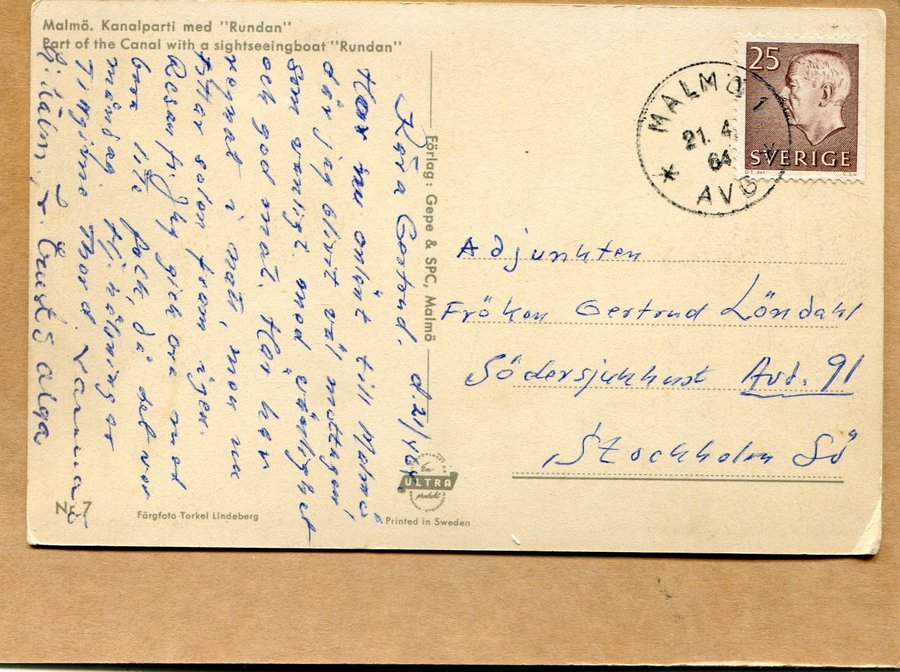 Malmö. Kanalparti med "Rundan"
Part of the Canal with a sightseeingboat "Rundan"
25
SVERIGE
MALMÖ 1
21. 4
64
AVG
Kära Gertrud. d. 21/4 64.
Har nu anlänt till Malmö
där jag blivit väl mottagen,
som vanligt med vänlighet
och god mat. Här har
regnat i natt, men nu
tittar solen fram igen.
Resan fr. gick bra med
bara lite folk, då det var
många
Thord.
Hälsn. fr.
Förlag: Gepe & SPC, Malmö
Adjunkten
Fröken Gertrud Löndahl
Södersjukhust Avd. 91
Stockholm Sö
Nr 7
Färgfoto Torkel Lindeberg
En
ULTRA
produkt
Printed in Sweden